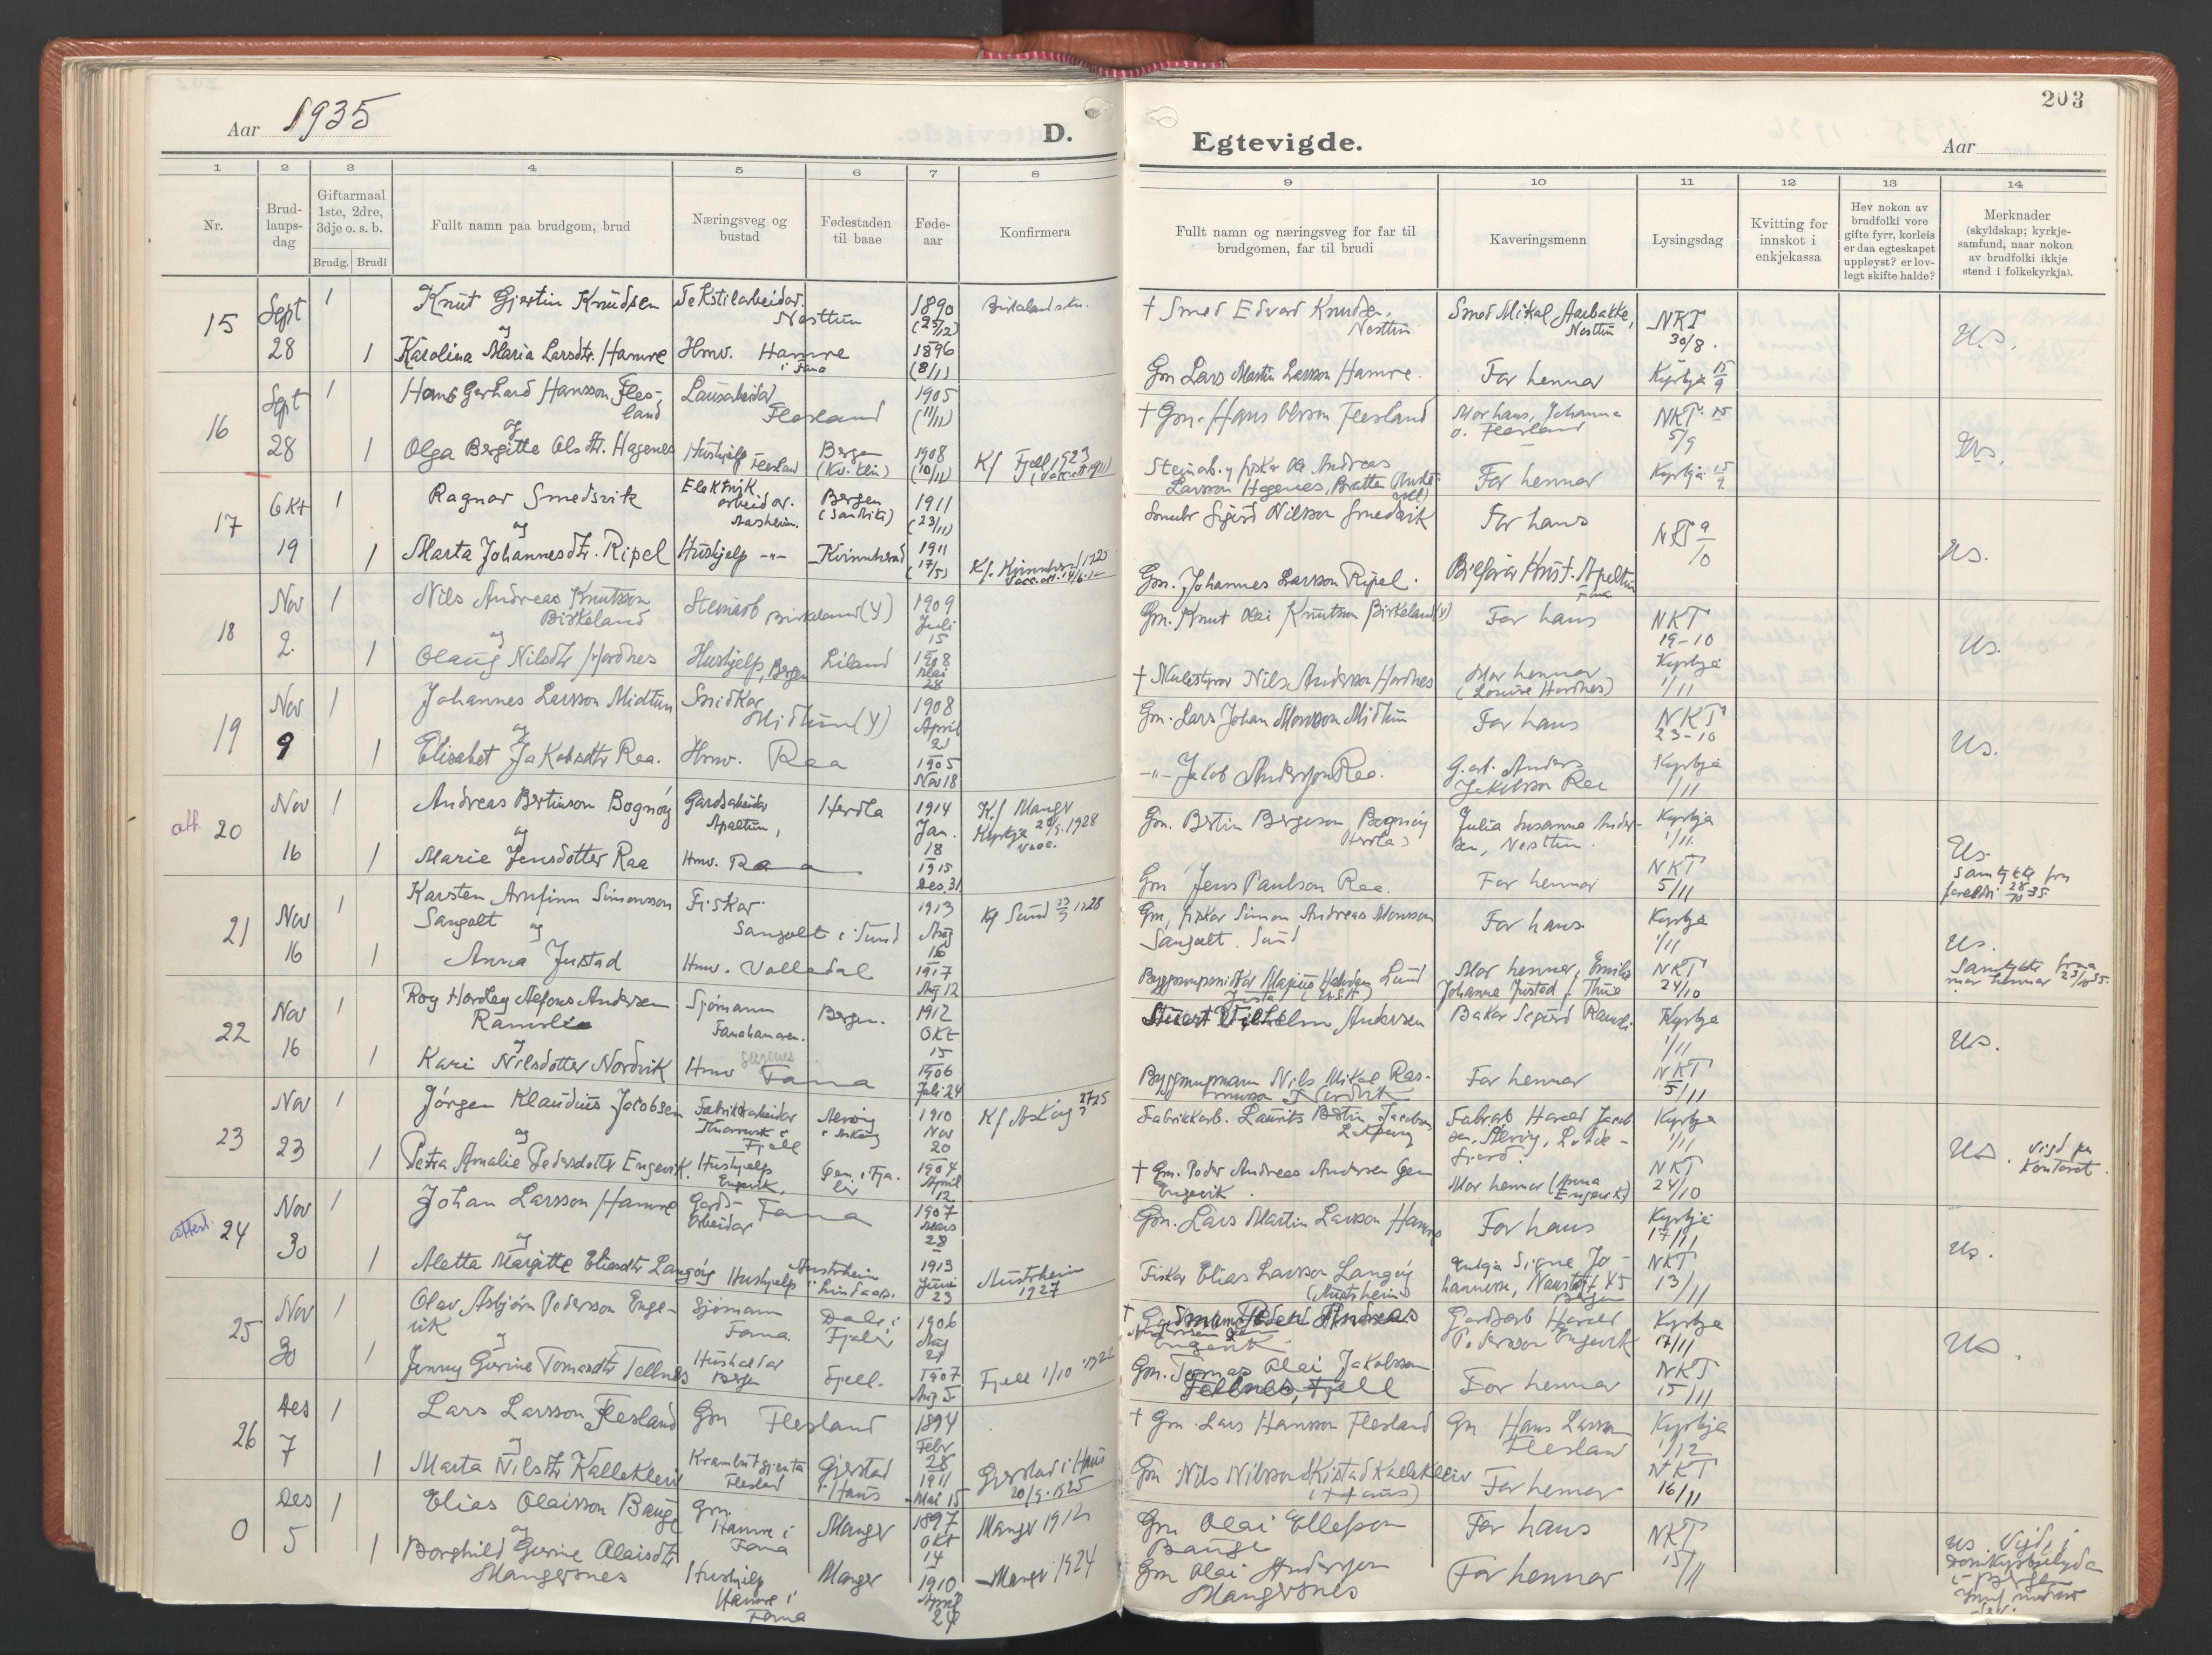 Aar 1935
D.
1 2 3 4 5 6 7 8
Nr.
Brud-
laups-
dag
Giftarmaal
1ste, 2dre,
3dje o. s. b.
Brudg. Brudi
Fullt namn paa brudgom, brud
Næringsveg og
bustad
Fødestaden
til baae
Føde-
aar
Konfirmera
15 Sept 28
1 Knut Gjertin Knudsen Tekstilarbeidar. Nesttun 1890 (25/12)
og
1 Karolina Maria Larsdtr. Hamre Hmv. Hamre i Fana 1896 (8/11)
16 Sept 28
1 Hans Gerhard Hansson Fles-
land Lausarbeidar Flesland 1905 (11/11)
og
1 Olga Bergitte Olsdtr. Hagenes Hushjelp Flesland Bergen (Kv. klin) 1908 (10/11) Kf Fjell 1923
17 Okt 19
1 Ragnar Smedsvik Elektrik. arbeidar. Bergen 1911 (23/11)
og
1 Marta Johannesdtr. Ripel Hushjelp -"- Kvinnherad 1911 (17/5) Kf. Kvinnherad
18 Nov 2
1 Nils Andreas Knutson
Birkeland Steinarb Birkeland (Y) 1909 Juli 15
og
1 Olaug Nilsdtr Hordnes Hushjelp, Bergen Liland 1908 Mai 28
19 Nov 9
1 Johannes Larsson Midtun Snidkar Midtun (Y) 1908 April
og
1 Elisabet Jakobsdtr Raa. Hmv. Raa 1905 Nov 18
att. 20 Nov 16
1 Andreas Bertinson Bognøy Gardsarbeidar Apeltun, Herdla 1914 Jan. 18 Kf Manger Kyrkje 1928
og
1 Marie Jensdotter Raa Hmv. Raa 1915 Des. 31
21 Nov 16
1 Karsten Arnfinn Simonsson
Sangolt Fiskar. Sangolt i Sund 1913 Aug 16 Kf Sund 1928
og
1 Anna Justad Hmv. Valledal 1917 Aug 12
22 Nov 16
1 Roy Hordley Alfons Andersen
Ramsli Sjømann Fanahamaren. Bergen. 1912 Okt 15
og
1 Kari Nilsdotter Nordvik Hmv Fana 1906 Juli 24
23 Nov 23
1 Jørgen Klaudius Jakobsen Fabrikkarbeidar Fjell i Askøy 1910 Nov 20 Kf Askøy
og
1 Petra Amalie Pedersdotter Engevik. Hushjelp Engevik. 1904 April 12
attest. 24 Nov 30
1 Johan Larsson Hamre Gards-
arbeidar Fana 1907 Mars 28
og
1 Aletta Margitte Eliasdtr Langøy Hushjelp Austrheim i Lindaas. 1913 Juni 23 Austrheim 1927
25 Nov 30
1 Olav Asbjørn Pederson Enge-
vik Sjømann Fana. Dale i Fjaler 1906 Aug
og
1 Jenny Gurine Tomasdtr Tellnes Bergen Fjell. 1907 Aug 5 Fjell 1/10 1922
26 Des 7
1 Lars Larsson Flesland Gm Flesland 1894 Febr 28
og
1 Marta Nilsdtr Kallekleiv Krambutgjenta Flesland Gjerstad i Haus 1911 Mai 15 Gjerstad i Haus 20/9 1925
0 Des 5
1 Elias Olaisson Bauge Gm. Hamre i Fana Manger 1897 Okt 14 Manger 1912
og
1 Borghild Gurine Olaisdtr
Mangersnes Hushjelp Hamre i Fana Manger 1910 April 24 Manger 1924
203
Egtevigde.
Aar
9 10 11 12 13 14
Fullt namn og næringsveg for far til
brudgomen, far til brudi
Kaveringsmenn
Lysingsdag
Kvitting for
innskot i
enkjekassa
Hev nokon av
brudfolki vore
gifte fyrr, korleis
er daa egteskapet
uppløyst? er lov-
legt skifte halde?
Merknader
(skyldskap; kyrkje-
samfund, naar nokon
av brudfolki ikkje
stend i folkekyrkja).
† Smed Edvard Knudsen, Nesttun Smed Mikal Aarbakke, Nesttun NKT 30/8. Us.
Gm Lars Martin Larsson Hamre. Far hennar Kyrkja 15/9
† Gm. Hans Olsson Flesland Mor hans, Johanna
O. Flesland NKT 5/9 Us.
Steinarb. og fiskar Ole Andreas
Larsson Hagenes, Bratten Far hennar Kyrkja 15/9
Sigurd Nilsson Smedsvik Far hans NKT 9/10 Us.
Gm. Johannes Larsson Ripel. Bilførar Apeltun
Gm. Knut Olai Knutson Birkeland (Y) Far hans NKT 19-10 Us.
† Skulestyrar Nils Andersson Hordnes Mor hennar
(Louise Hordnes) Kyrkja 1/11
Gm. Lars Johan Monsson Midtun Far hans NKT 23-10 Us.
-"- Jakob Andersson Raa. G.arb. Anders
Jakobsson Raa Kyrkja 1/11
Gm. Bertin Bergeson Bognøy (Herdla) Julia Susanna Ander-
sen, Nesttun. Kyrkja 1/11. Us.
Gm Jens Paulson Raa. Far hennar NKT 5/11 Samtykke fra
foreldri 28/10 35.
Gm, fiskar Simon Andreas Monsson
Sangolt. Sund Far hans Kyrkja 1/11 Us.
Mor hennar, Emilie
Johanna Justad f. Thue NKT 24/10 Samtykke fraa
mor hennar 23/10 35.
Vilhelm Andersen Bakar Sigurd Ramsli Kyrkja 1/11 Us.
Byggmupmann Nils Mikal Ras-
musson Nordvik Far hennar NKT 5/11
Fabrikkarb. Laurits Bertin Jacobsen Fabrarb Harald Jacob
sen. Kyrkja 1/11 Us. vigd paa
kontoret.
† Gm. Peder Andreas Andersen Gjen
Engevik. Mor hennar (Anna
Engevik) NKT 24/10
Gm. Lars Martin Larsson Hamre Far hans Kyrkja 17/11 Us.
Fiskar Elias Larsson Langøy
(Austrheim) Signe Jo-
hannesse, Bergen NKT 13/11
† Gardmann Peder Andreas
Andersson
Engevik Gardsarb Harald
Pedersson Engevik Kyrkja 17/11 Us.
Gm. Tomas Olai Jakobsson
Tellnes, Fjell Far hennar NKT 15/11
† Gm. Lars Hansson Flesland Gm Hans Larsson
Flesland Kyrkja 1/12
Gm Nils Nilsson Kallekleiv
(i Haus) Far hennar NKT 16/11
Gm Olai Ellefson
Bauge Far hans NKT 15/11 Us. Vigde i
Domkyrkja
i Bergen
Gm Olai Anderssen
Mangersnes Far hennar